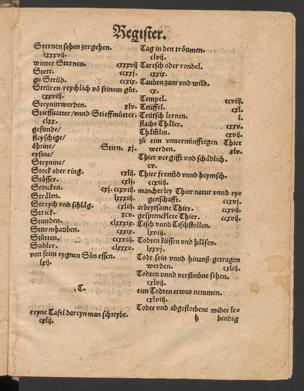 Register.
Sternen sehen zergehen.
cxxxvij.
winter Sternen. cxxxvij
Stett. ccxxj.
ge Streüd. ccxix.
cxxvij.
Steynin werden. xlv.
Stieffuatter/vnnd Stieffmůtter.
clxx.
gesunde/
fleyschige/
ehrine/ Stirn. xj.
eysine/
Steynine/
Stock oder ring. cxlj.
Stösser. clij.
Storcken. cxxvij.
Strålen. lxxxiiij
Streych vnd schläg. cxlix
Strick. xcv.
Stunden. clxxxix.
Sturmhauben. cxxxix.
Stůtten. ccxxiij
Sudler. clxxxv.
von seim eygnen Sůn essen.
lxij.
T.
eeyne Tafel dareyn man schreybt.
cxlij.
Tag in den tröumen.
clvij.
Tartsch oder rondel.
cxxix.
Tauben zam vnd wild.
cx.
Tempel. ccviij.
Teüffel. cxl.
Teütsch lernen. l.
flache Thäler. ccxv.
Thåmlin.
zů eim vnuernünfftigen Thier
werden. xlv.
Thier vergifft vnd schädlich.
cv.
Thier frembd vnnd heymsch.
ccxij.
mancherley Thier natur vnnd eygenschafft. ccxx.
arbeytsame Thier. ccxvij.
gesprencklete Thier. ccxvij
Tisch vnnd Tischstollen.
lxvij.
Todten küssen vnd hälsen.
lxxvj.
Tode sein vnnd hinauß getragen
werden. clvij.
Todten vnnd verstorbne sehen.
cxlvij.
ein Todten etwas nemmen.
cxlviij.
Todte vnd abgestorbene wider le-
h bendig